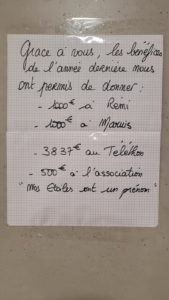 Grace à vous, les bénéfices
de l'année dernière nous
ont permis de donner :
- 1000€ à Rémi
- 1000€ à Marius
- 3837€ au Téléthon
- 500€ à l'association
"Mes Etoiles ont un prénom"